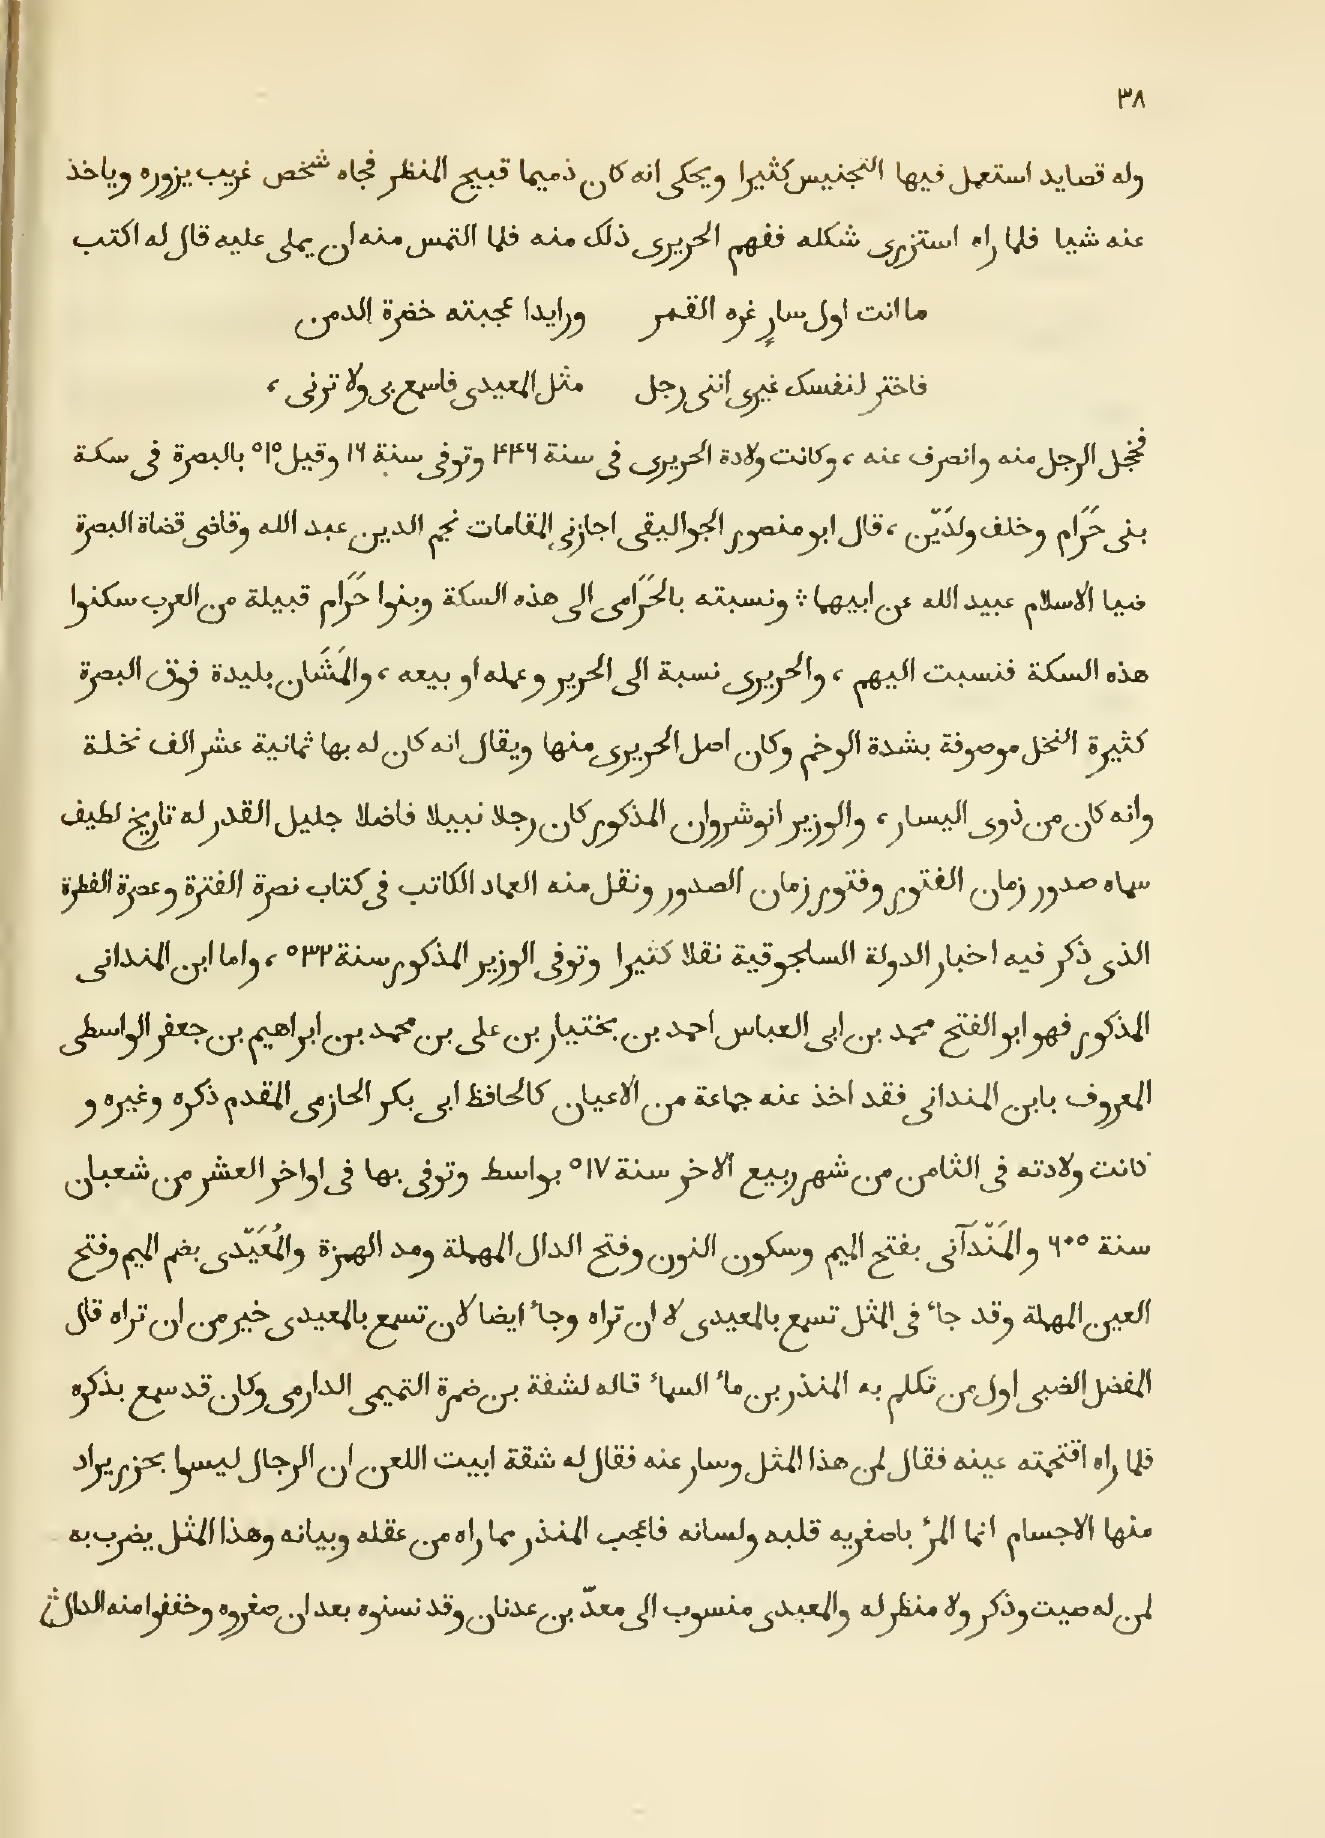 ٣٨
وله قصايد استعمل فيها التجنيس كثيرا ويحكى انه كان ذميما قبيح المنظر فجاه شخص غريب يزوره وياخذ
عنه شيا فلما راه استزرى شكله ففهم الحريرى ذلك منه فلما التمس منه ان يملى عليه قال له اكتب
ما انت اول سارٍ غره القمر ورايدا عجبته خضرة الدمن
فاختر لنفسك غيرى اننى رجل مثل المعيدى فاسمع بى ولا ترنى ،
فخجل الرجل منه وانصرف عنه ، وكانت ولادة الحريرى فى سنة ۴۴٦ وتوفى سنة ١٦ وقيل ٥١٥ بالبصرة فى سكة
بنى حَرَام وخلف ولدَيّن ، قال ابو منصور الجواليقى اجازنى المقامات نجم الدين عبد الله وقاضى قضاة البصرة
ضيا الاسلام عبيد الله عن ابيهما ؛ ونسبته بالحَرَامى الى هذه السكة وبنوا حَرَام قبيلة من العرب سكنوا
هذه السكة فنسبت اليهم ، والحريرى نسبة الى الحرير وعمله او بيعه ، والمَشَان بليدة فوق البصرة
كثيرة النخل موصوفة بشدة الوخم وكان اصل الحريرى منها ويقال انه كان له بها ثمانية عشر الف نخلة
وانه كان من ذوى اليسار ، والوزير انوشروان المذكور كان رجلا نبيلا فاضلا جليل القدر له تاريخ لطيف
سماه صدور زمان الفتور وفتور زمان الصدور ونقل منه العماد الكاتب فى كتاب نصرة الفترة وعصرة الفطرة
الذى ذكر فيه اخبار الدولة السلجوقية نقلا كثيرا وتوفى الوزير المذكور سنة ٥٣٢ ، واما ابن المندانى
المذكور فهو ابو الفتح محمد بن ابى العباس احمد بن بختيار بن على بن محمد بن ابراهيم بن جعفر الواسطى
المعروف بابن المندانى فقد اخذ عنه جماعة من الاعيان كالحافظ ابى بكر الحازمى المقدم ذكره وغيره و
كانت ولادته فى الثامن من شهر ربيع الاخر سنة ٥١٧ بواسط وتوفى بها فى اواخر العشر من شعبان
سنة ٦٠٥ والمَنّدَآنى بفتح الميم وسكون النون وفتح الدال المهملة ومد الهمزة والمُعَيّدى بضم الميم وفتح
العين المهملة وقد جاء فى المثل تسمع بالمعيدى لا ان تراه وجاء ايضا لان تسمع بالمعيدى خير من ان تراه قال
المفضل الضبى اول من تكلم به المنذر بن ماء السماء قاله لشقة بن ضمرة التميمى الدارمى وكان قد سمع بذكره
فلما راه اقتحمته عينه فقال لمن هذا المثل وسار عنه فقال له شقة ابيت اللعن ان الرجال ليسوا بجزر يراد
منها الاجسام انما المرء باصغريه قلبه ولسانه فاعجب المنذر مما راه من عقله وبيانه وهذا المثل يضرب به
لمن له صيت وذكر ولا منظر له والمعيدى منسوب الى معدّ بن عدنان وقد نسنوه بعد ان صغروه وخففوا منه الدال